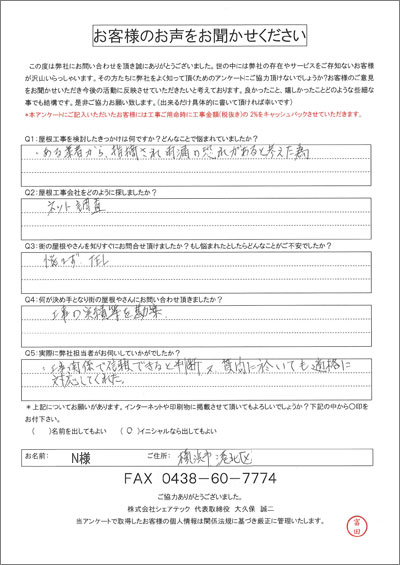 お客様のお声をお聞かせください
この度は弊社にお問い合わせを頂き誠にありがとうございました。世の中には弊社の存在やサービスをご存知ないお客様
が沢山いらっしゃいます。その方たちに弊社をよく知って頂くためのアンケートにご協力頂けないでしょうか？お客様のご意見
をお聞かせいただき今後の活動に反映させていきたいと考えております。良かったこと、嬉しかったことどのような些細な
事でも結構です。是非ご協力お願い致します。（出来るだけ具体的に書いて頂ければ幸いです）
*本アンケートにご記入いただいたお客様には工事ご用命時に工事金額（税抜き）の2%をキャッシュバックさせていただきます。
Q1：屋根工事を検討したきっかけは何ですか？どんなことで悩まれていましたか？
・ある業者から、指摘され雨漏の恐れがあると考えた為
Q2：屋根工事会社をどのように探しましたか？
ネット調査
Q3：街の屋根やさんを知りすぐにお問合せ頂けましたか？もし悩まれたとしたらどんなことがご不安でしたか？
悩まず TEL
Q4：何が決め手となり街の屋根やさんにお問い合わせ頂きましたか？
工事の実積等を勘案
Q5：実際に弊社担当者がお伺いしていかがでしたか？
・工事関係で信頼できると判断 又、質問に於いても適格に
対応してくれた。
*上記についてお願いがあります。インターネットや印刷物に掲載させて頂いてもよろしいでしょうか？下記の中から〇印を
お付け下さい。
（　）名前を出してもよい （○）イニシャルなら出してもよい
お名前： N様 ご住所： 横浜市港北区
FAX 0438-60-7774
ご協力ありがとうございました。
株式会社シェアテック 代表取締役 大久保 誠二
当アンケートで取得したお客様の個人情報は関係法規に基づき厳正に管理いたします。
富田